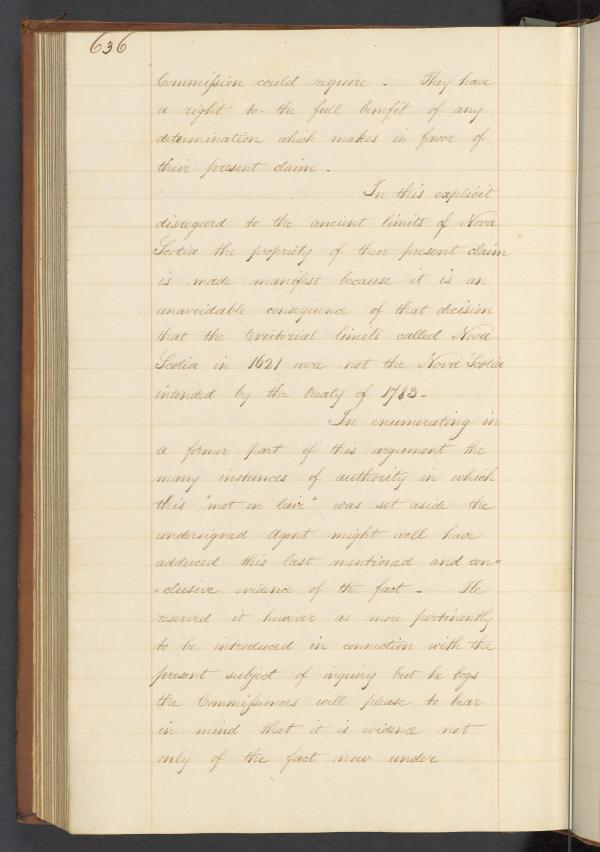 636
Commission could require. They have
a right to the full benefit of any
determination which makes in favor of
their present claim.
In this explicit
disregard to the ancient limits of Nova
Scotia the propriety of their present claim
is made manifest because it is an
unavoidable consequence of that decision
that the territorial limits called Nova
Scotia in 1621 were not the Nova Scotia
intended by the treaty of 1783.
In enumerating in
a former part of this argument the
many instances of authority in which
this "mot on lair" was set aside the
undersigned Agent might well have
adduced this last mentioned and con"
"clusive evidence of the fact. He
reserved it however as more pertinently
to be introduced in connection with the
present subject of inquiry but he begs
the Commissioners will please to bear
in mind that it is evidence not
only of the fact now under